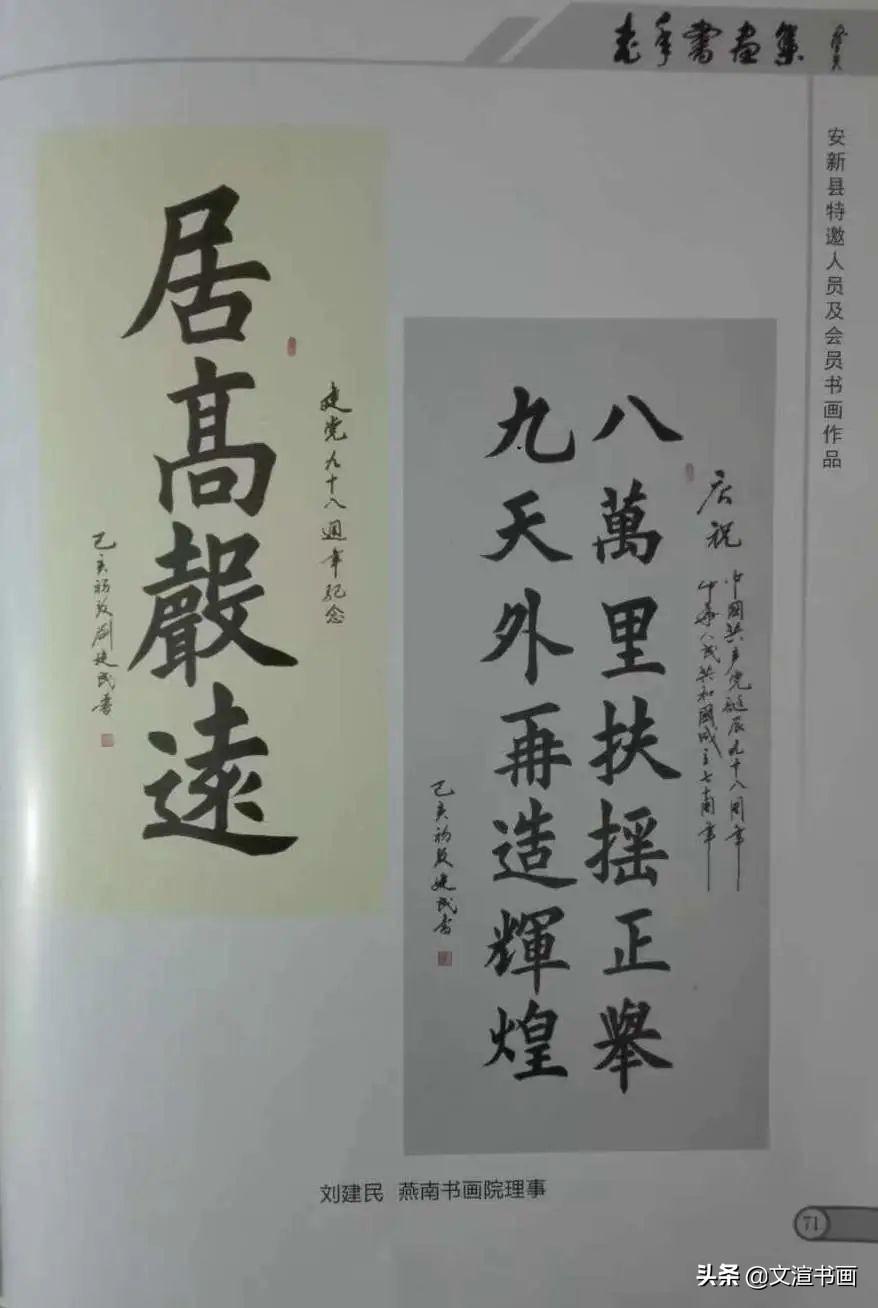 老年书画集
安新县特邀人员及会员书画作品
居高聲遠
建党九十八週年纪念
己亥初夏刘建民書
八萬里扶摇正舉
九天外再造輝煌
庆祝
中國共产党诞辰九十八周年
中華人民共和國成立七十周年
己亥初夏建民書
刘建民 燕南书画院理事
71
头条 @文渲书画